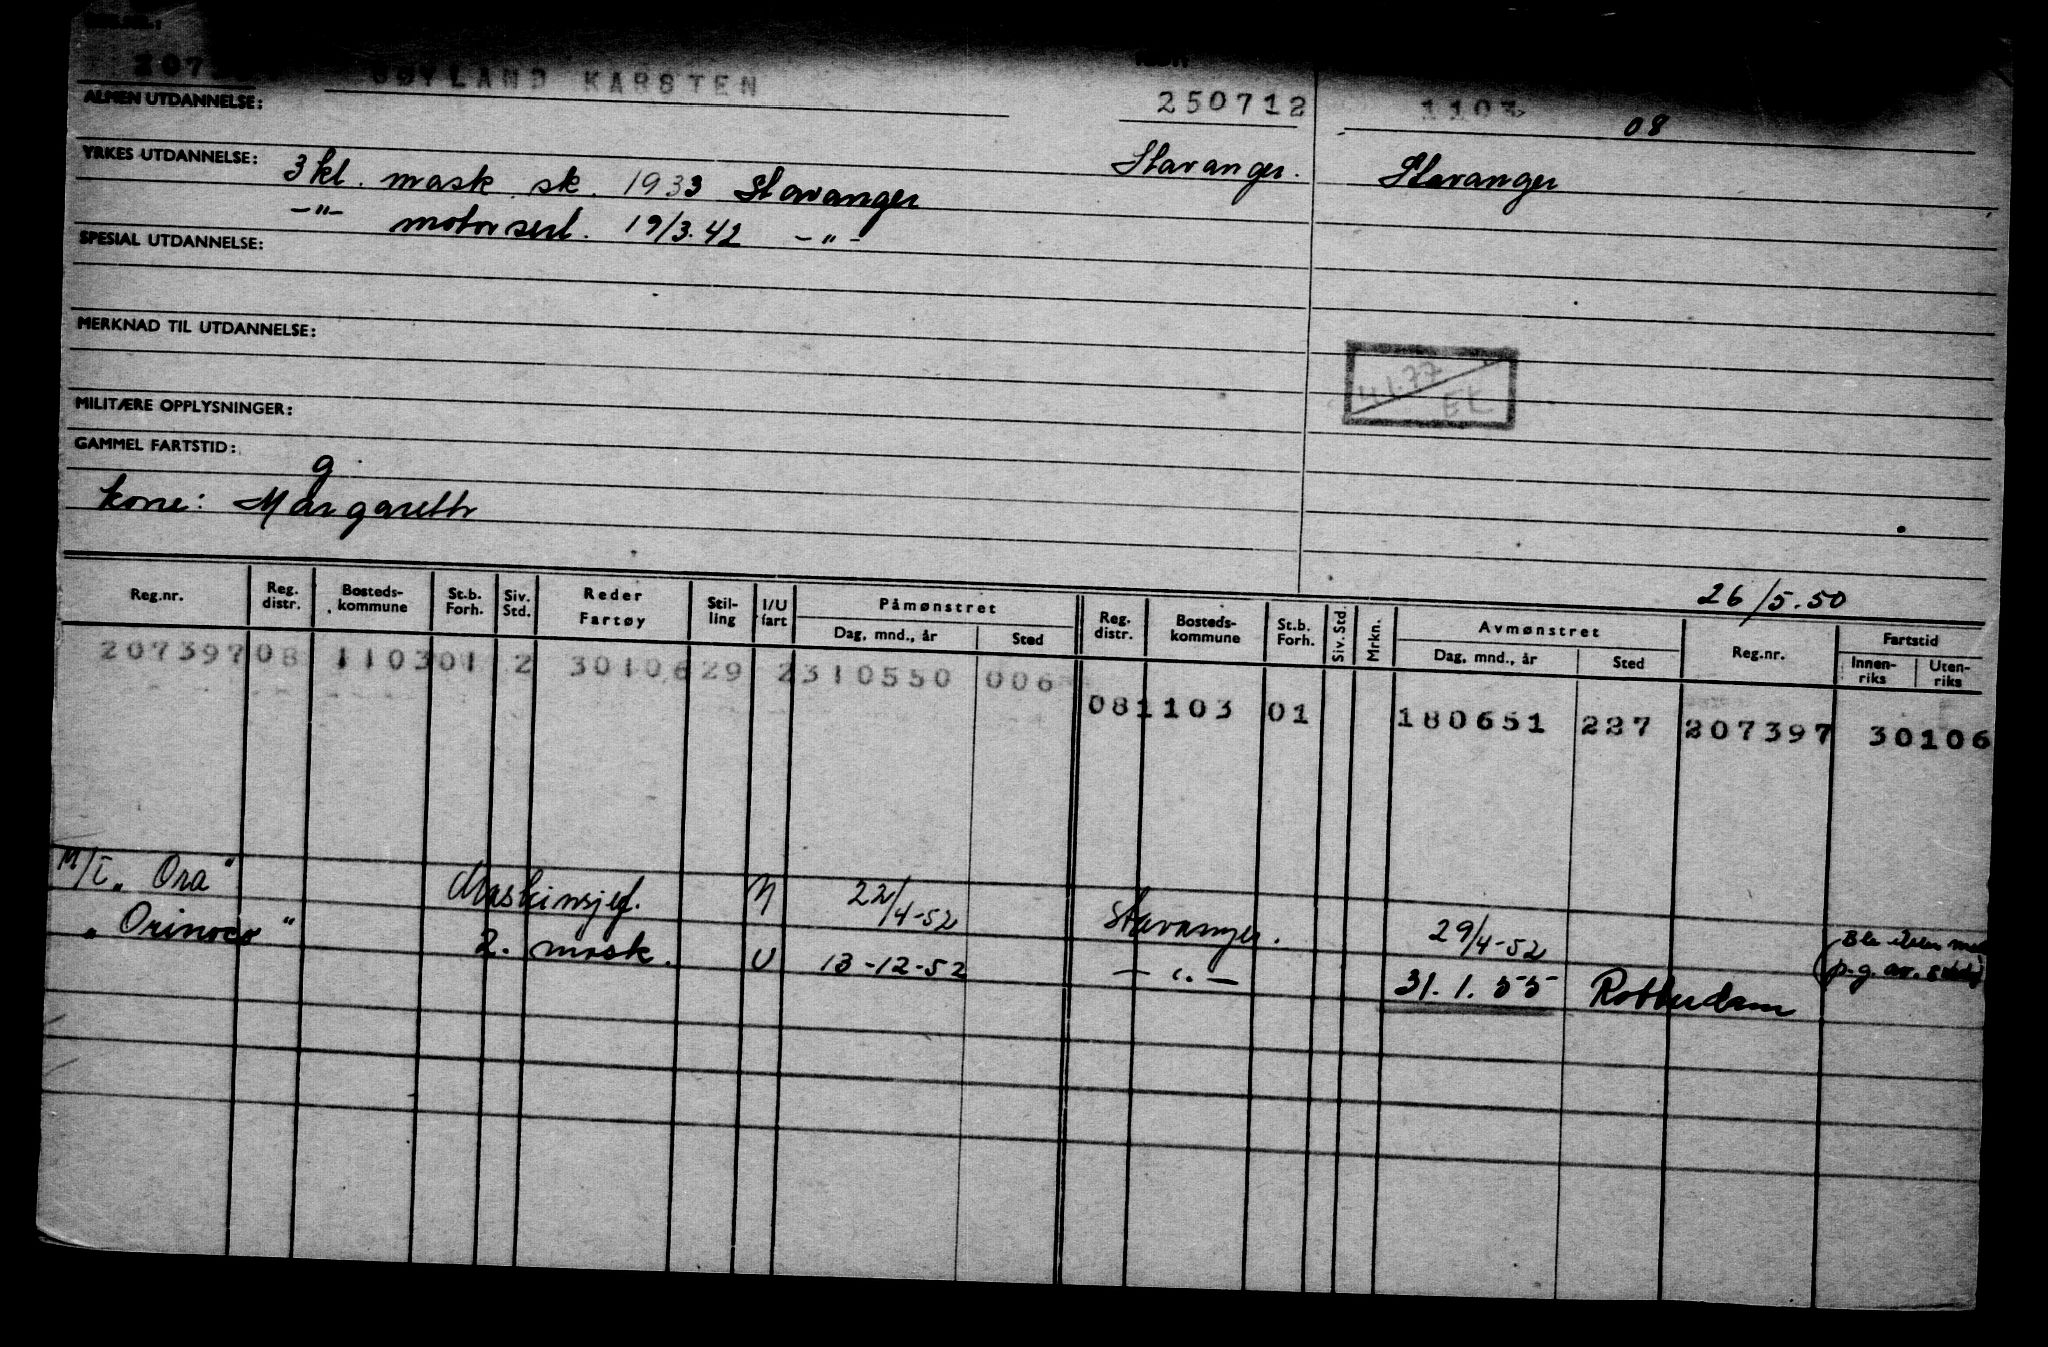 ØYLAND KARSTEN
250712
1103
08
ALMEN UTDANNELSE:
YRKES UTDANNELSE: 3 kl. mask sk. 1933 Stavanger
Stavanger.
Stavanger
-"- motor serl. 19/3.42 -"-
SPESIAL UTDANNELSE:
MERKNAD TIL UTDANNELSE:
4.1.77
EL
MILITÆRE OPPLYSNINGER:
GAMMEL FARTSTID:
g.
kone: Margareth
26/5.50
Reg.nr. Reg. distr. Bosteds-kommune St.b. Forh. Siv. Std. Reder Fartøy Stil-ling I/U fart Påmønstret Dag, mnd., år Sted Reg. distr. Bosteds-kommune St.b. Forh. Siv. Std Mrkn. Avmønstret Dag, mnd., år Sted Reg.nr. Fartstid Innen-riks Uten-riks
207397 08 1103 01 2 30106 29 2 310550 006
08 1103 01 180651 227 207397 30106
M/T "Ora" Maskinsjef. N 22/4-52 Stavanger. 29/4-52
"Orinoco" 2. mask. U 13-12-52 -"- 31.1.55 Rotterdam
p.g. av.